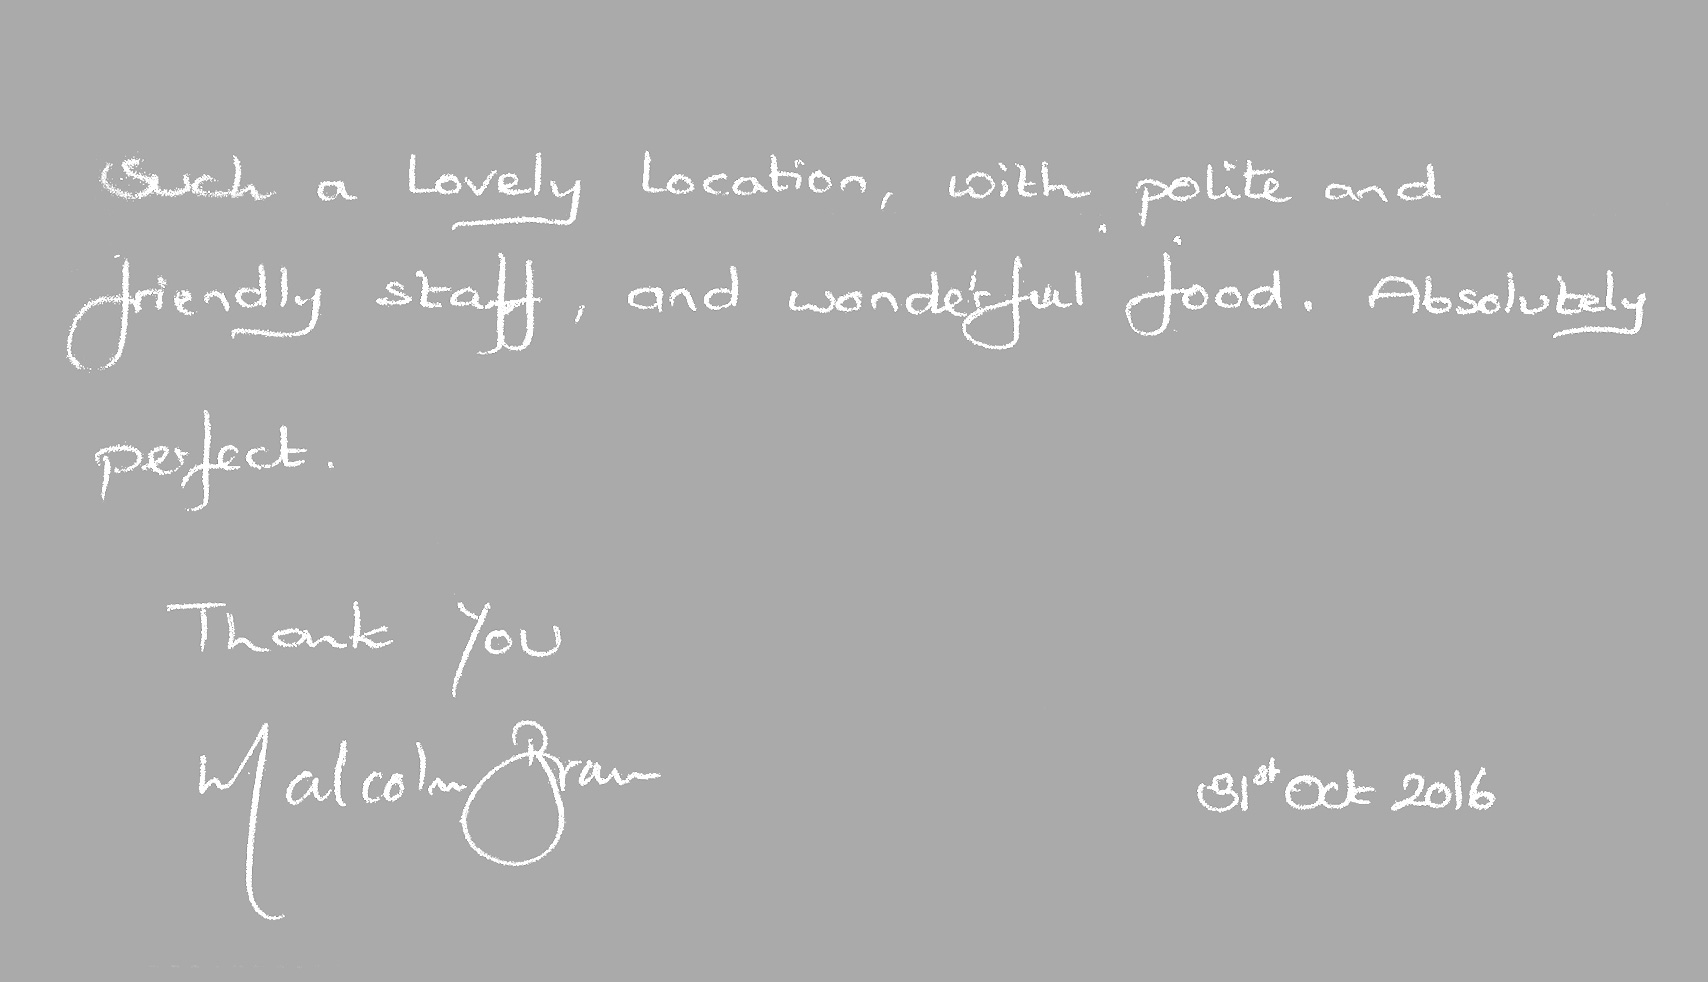 Such a Lovely Location, with polite and
friendly staff, and wonderful food. Absolutely
perfect.
Thank You
Malcolm
31st Oct 2016